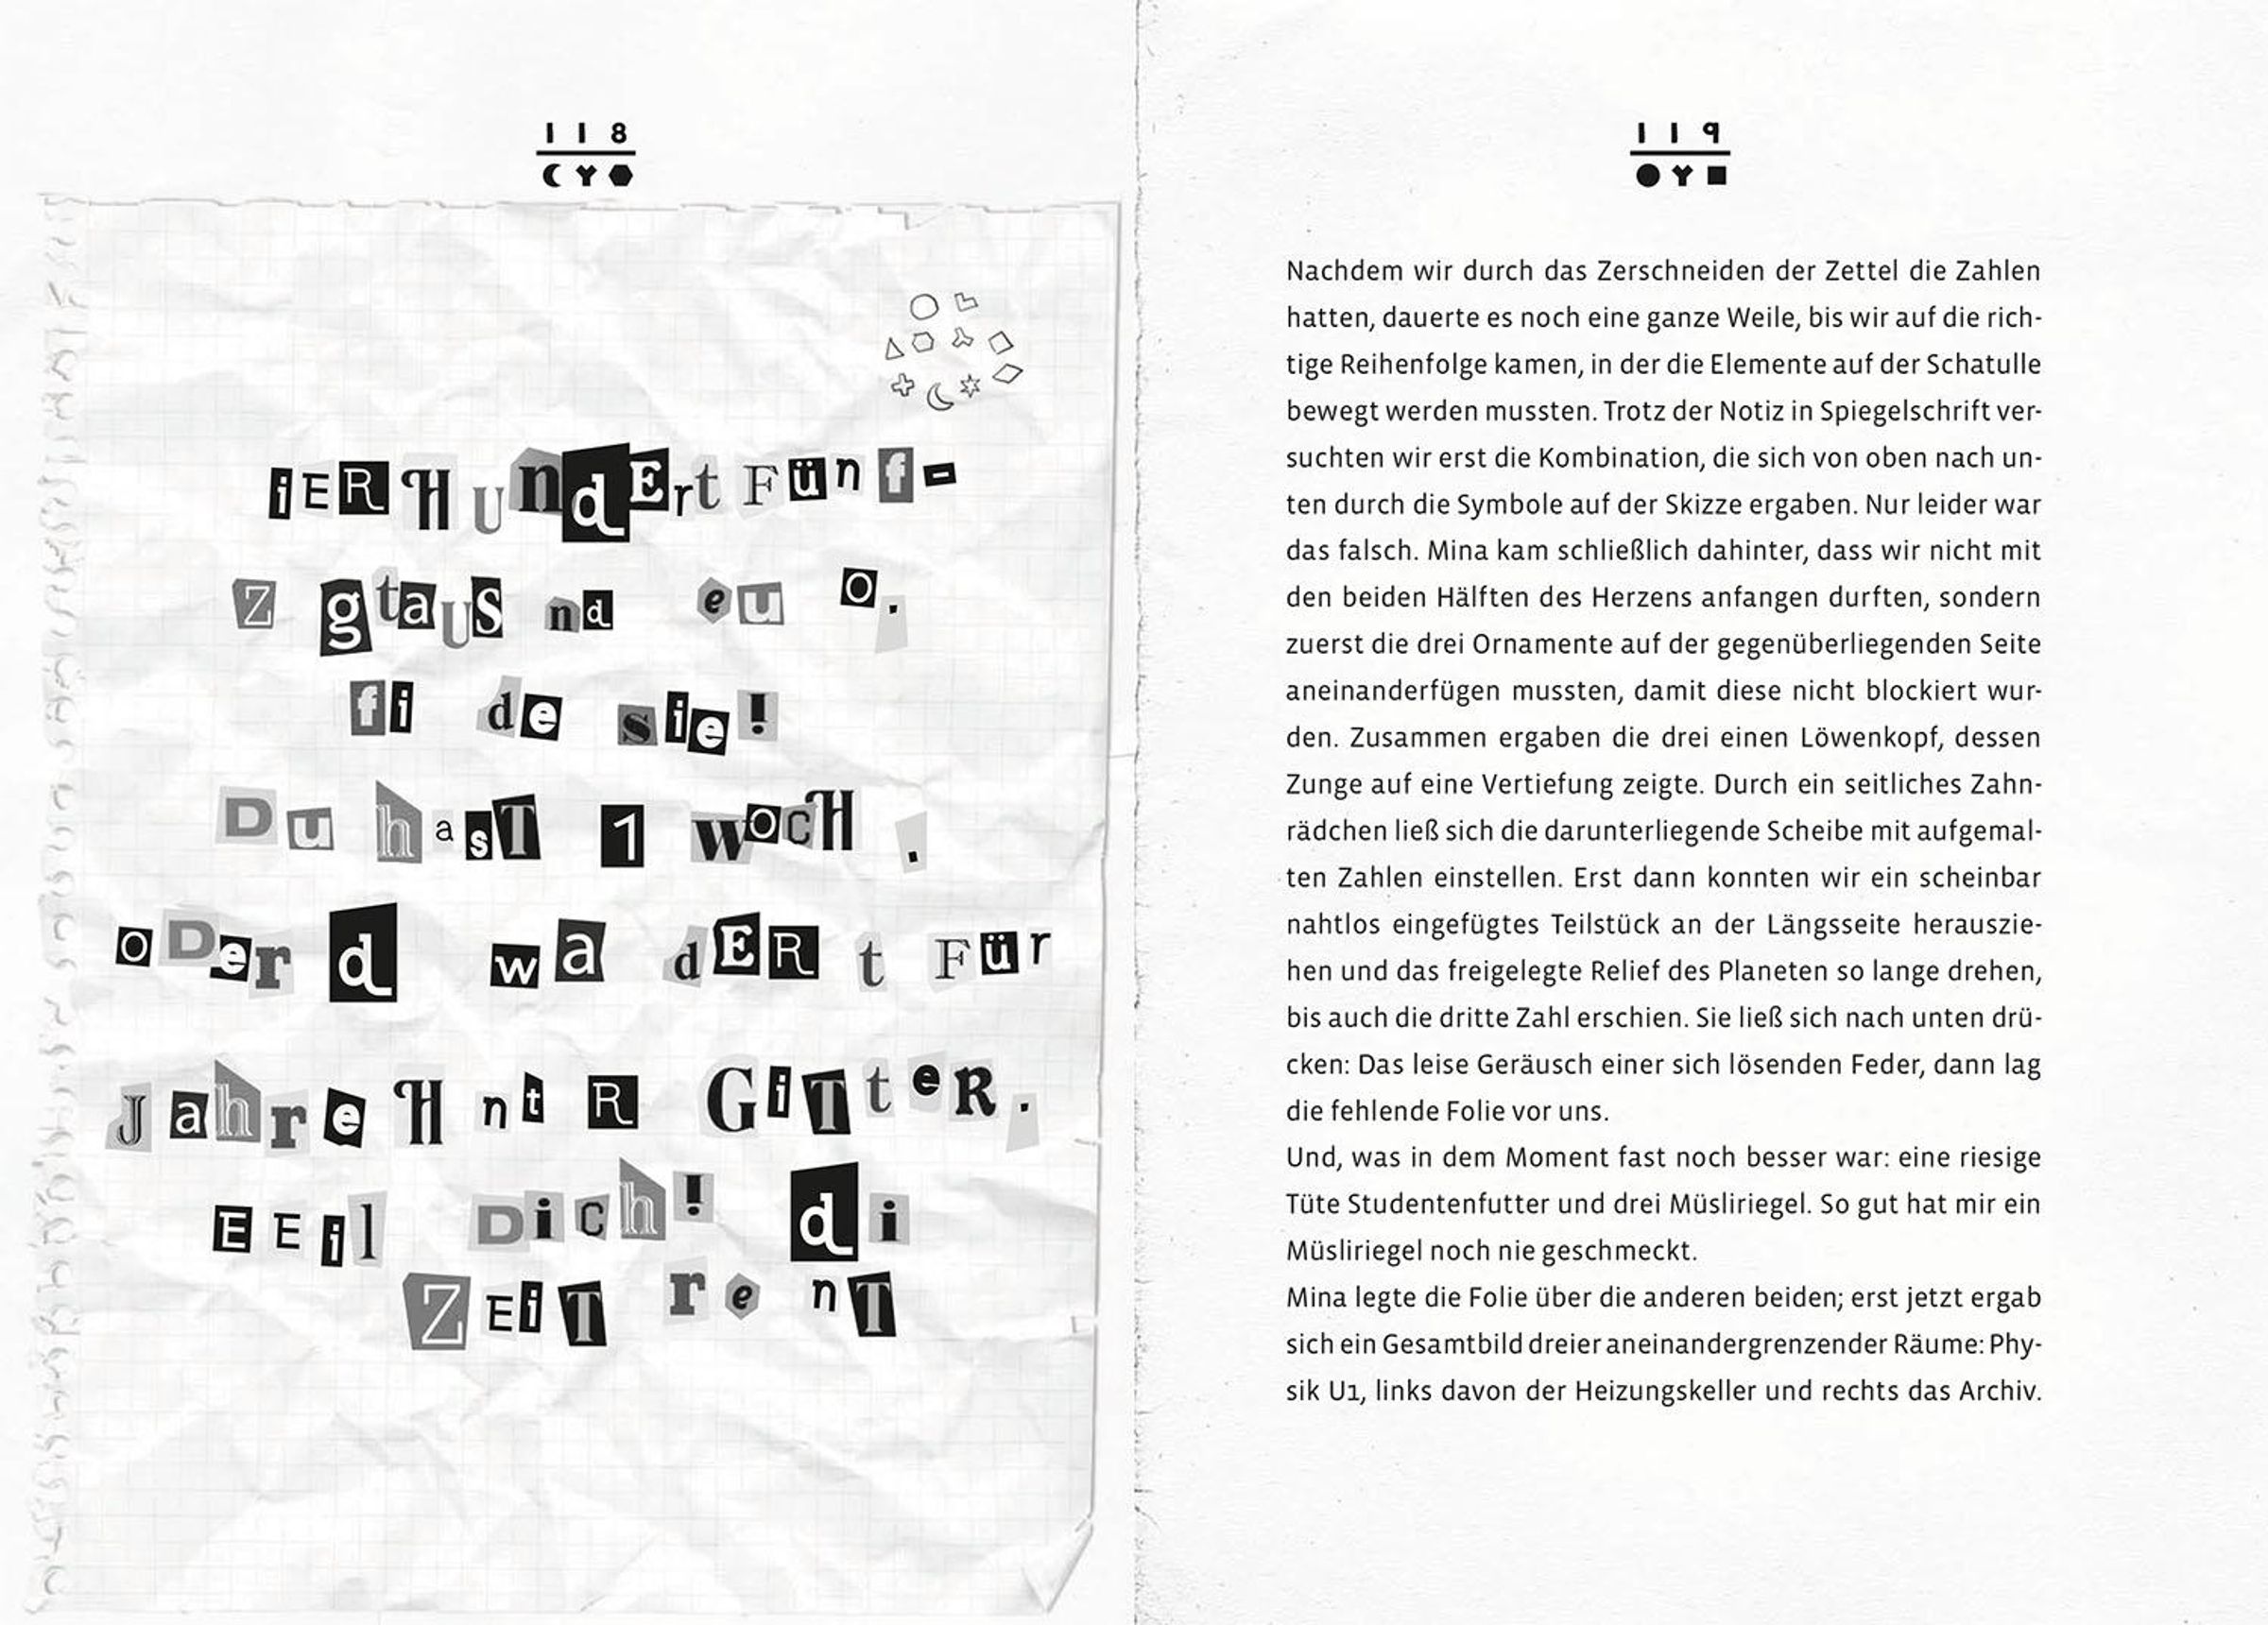 1 1 8
iERHUndErt Fünf-
Z gtaUS nd eu O.
fi de sie!
Du hasT 1 wOcH .
ODer d wa dER t Für
Jahre H nt R GiTteR.
EEil Dich! di
ZEiT re nT
1 1 9
Nachdem wir durch das Zerschneiden der Zettel die Zahlen
hatten, dauerte es noch eine ganze Weile, bis wir auf die rich-
tige Reihenfolge kamen, in der die Elemente auf der Schatulle
bewegt werden mussten. Trotz der Notiz in Spiegelschrift ver-
suchten wir erst die Kombination, die sich von oben nach un-
ten durch die Symbole auf der Skizze ergaben. Nur leider war
das falsch. Mina kam schließlich dahinter, dass wir nicht mit
den beiden Hälften des Herzens anfangen durften, sondern
zuerst die drei Ornamente auf der gegenüberliegenden Seite
aneinanderfügen mussten, damit diese nicht blockiert wur-
den. Zusammen ergaben die drei einen Löwenkopf, dessen
Zunge auf eine Vertiefung zeigte. Durch ein seitliches Zahn-
rädchen ließ sich die darunterliegende Scheibe mit aufgemal-
ten Zahlen einstellen. Erst dann konnten wir ein scheinbar
nahtlos eingefügtes Teilstück an der Längsseite herauszie-
hen und das freigelegte Relief des Planeten so lange drehen,
bis auch die dritte Zahl erschien. Sie ließ sich nach unten drü-
cken: Das leise Geräusch einer sich lösenden Feder, dann lag
die fehlende Folie vor uns.
Und, was in dem Moment fast noch besser war: eine riesige
Tüte Studentenfutter und drei Müsliriegel. So gut hat mir ein
Müsliriegel noch nie geschmeckt.
Mina legte die Folie über die anderen beiden; erst jetzt ergab
sich ein Gesamtbild dreier aneinandergrenzender Räume: Phy-
sik U1, links davon der Heizungskeller und rechts das Archiv.